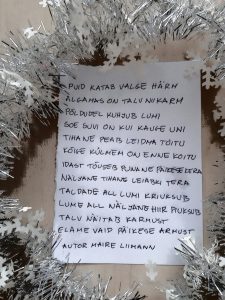 PUID KATAB VALGE HÄRM
ÄLGAMAS ON TALV NII KARM
PÕLDUDEL KUHJUB LUMI
SOE SUVI ON KUI KAUGE UNI
TIHANE PEAB LEIDMA TOITU
KÕIGE KÜLMEM ON ENNE KOITU
IDAST TÕUSEB PUNANE PÄIKESE TERA
NÄLJANE TIHANE LEIABKI TERA
TALDADE ALL LUMI KRIUKSUB
LUME ALL NÄLJANE HIIR PIUKSUB
TALV NÄITAB KARMUST
ELAME VAID PÄIKESE ARMUST
AUTOR MAIRE LIIMANN